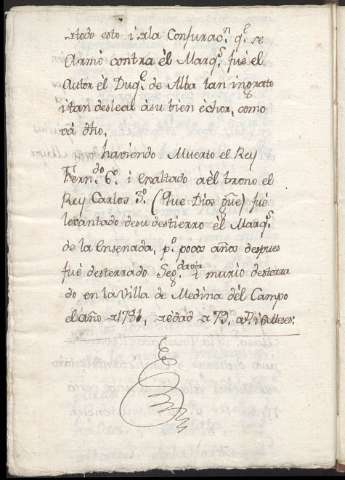 todo esto i â la Confurac.ⁿ q.ᵉ se
Armô contra êl Marq.ˢ fuê el
Autor êl Duq.ᵉ de Alba tan ingrato
i tan desleal â su bien êchor, como
vâ dho,
haviendo Muerto el Rey
Fern.ᵈᵒ 6.º i exaltado âel trono el
Rey Carlos 3.º (Que Dios gûe) fuê
levantado de su destierro êl Marq.ˢ
de la Ensenada, p.º pocos años despues
fuê desterrado Seg.ᵈᵃ vez i muriô desterra
do en la Villa de Medina del Campo
el año de 1781, de edad de 79, a.ˢ i meses.